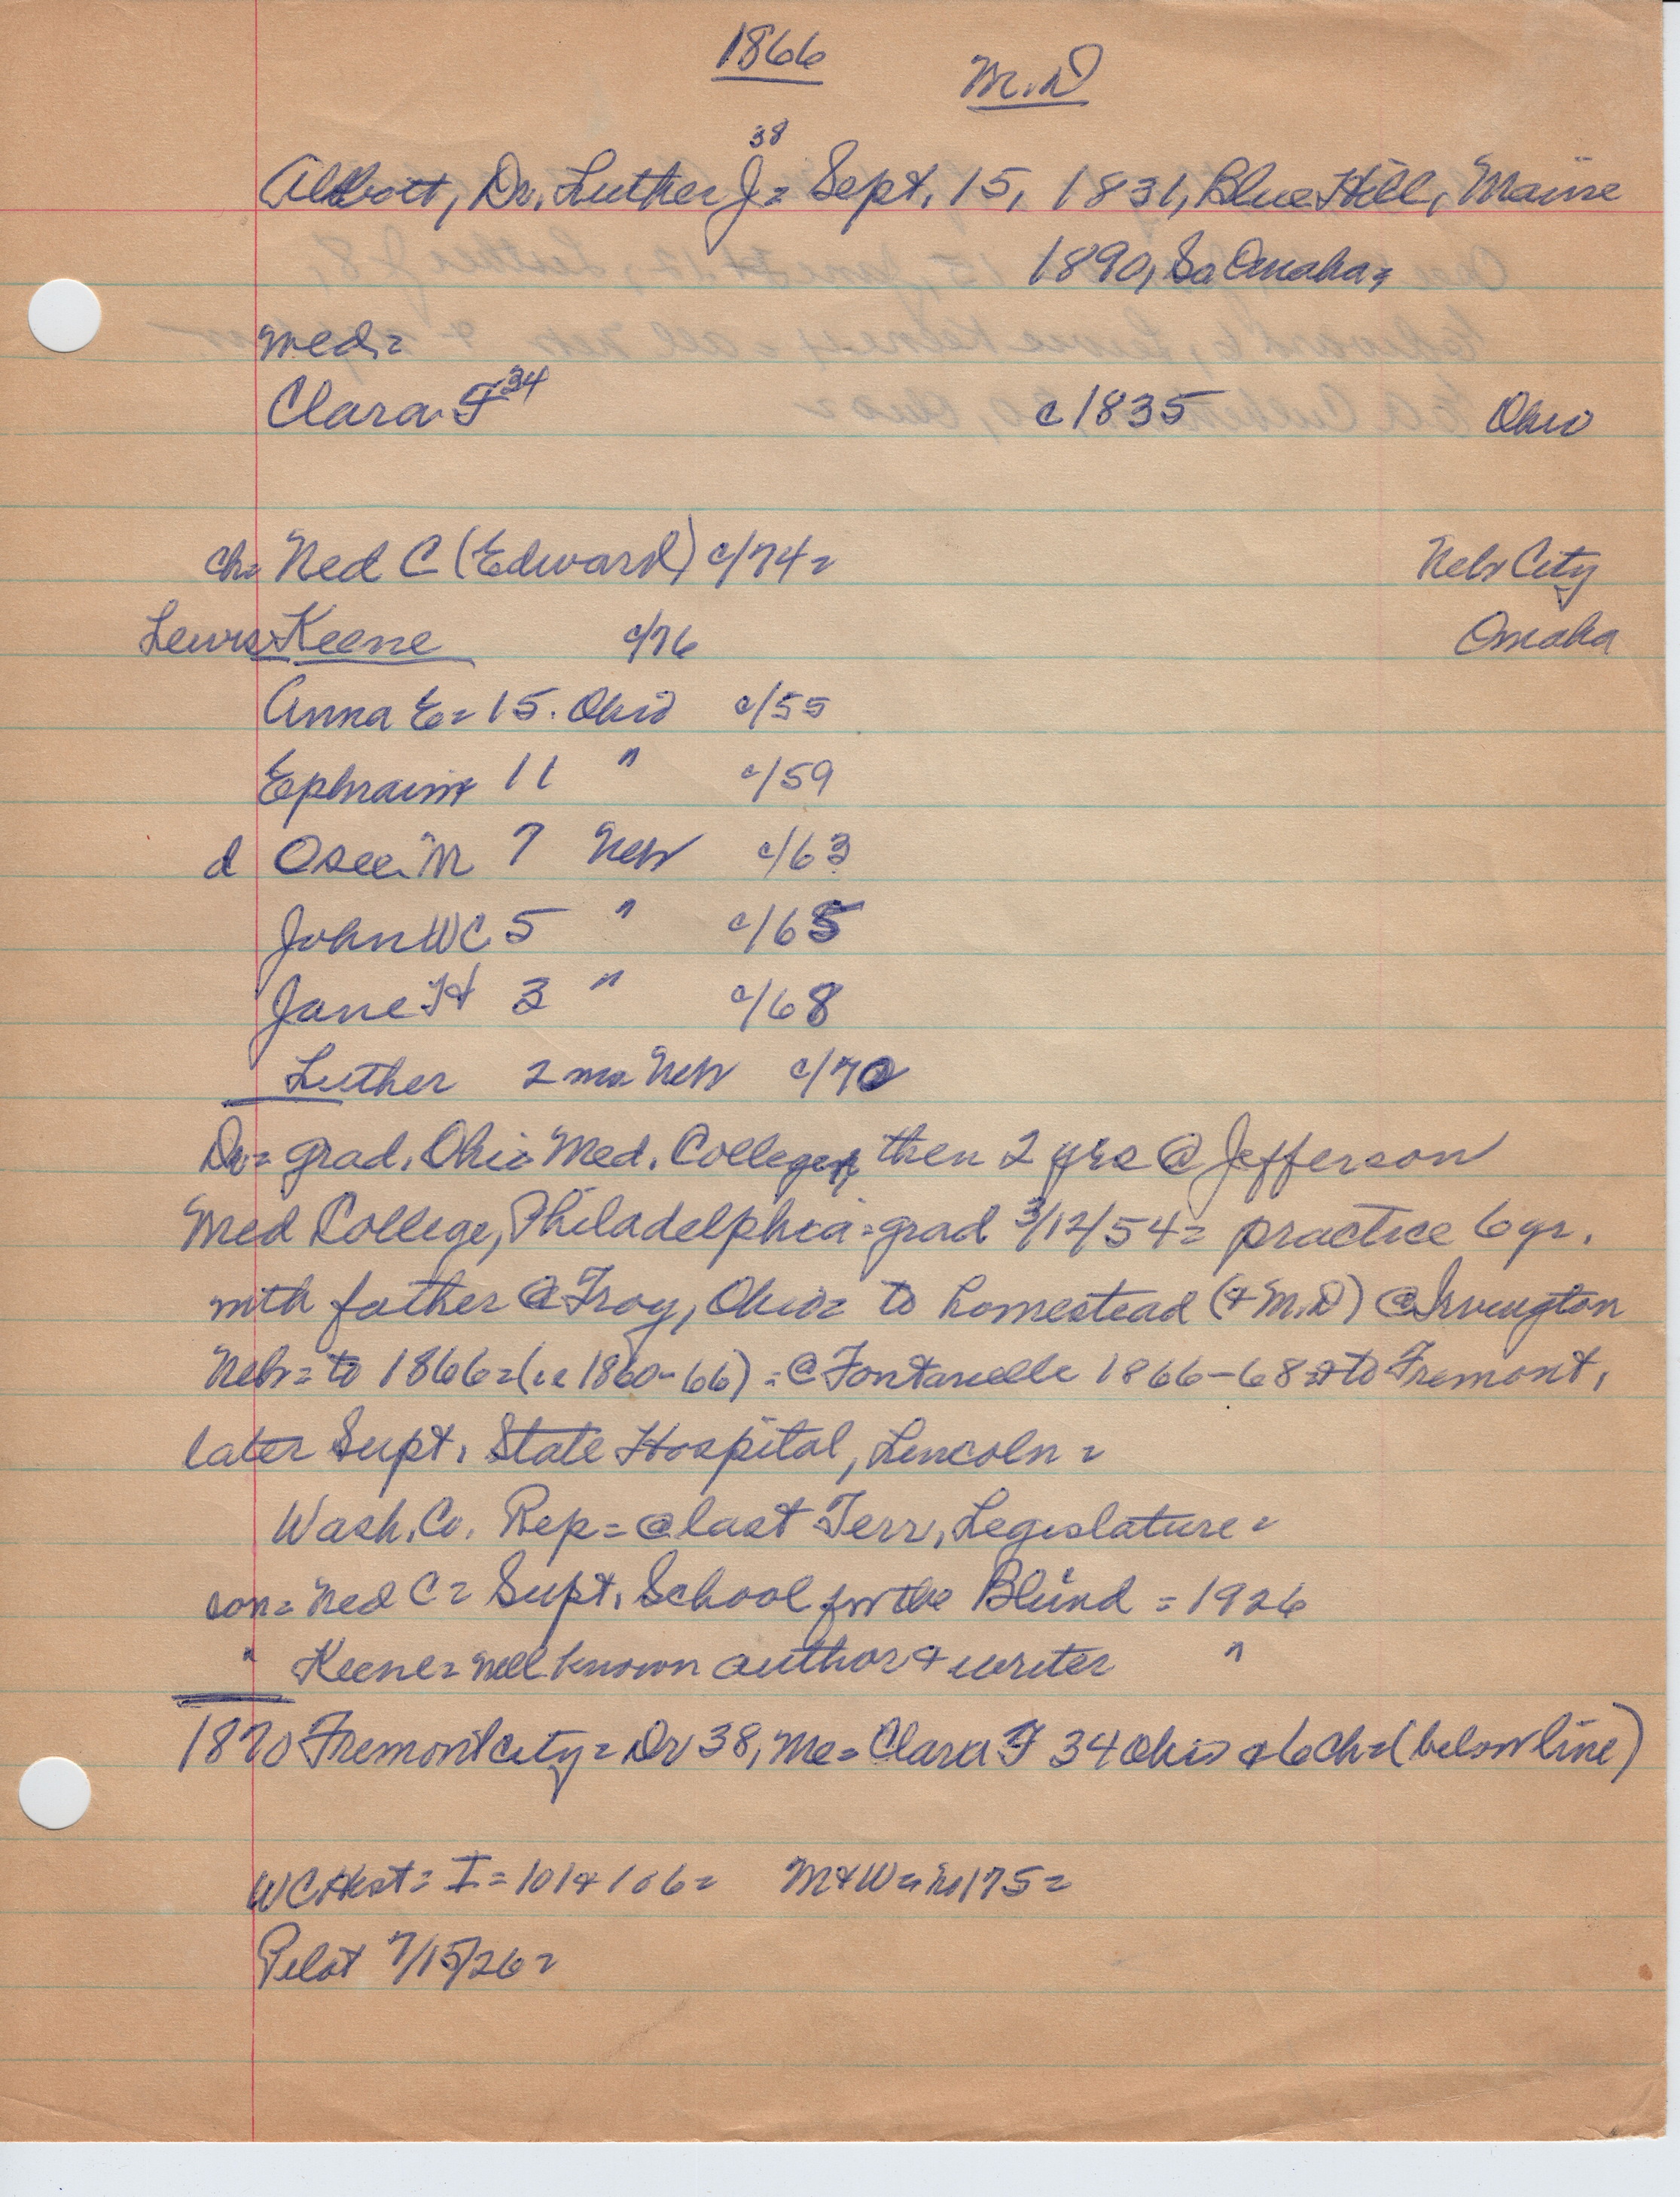 1866
M.D
38
Abbott, Dr. Luther J = Sept. 15, 1831, Blue Hill, Maine
1890, So Omaha =
med =
Clara F 34 c 1835 Ohio
ch = Ned C (Edward) c/74 = Nebr City
Lewis Keene c/76 Omaha
Anna E = 15. Ohio c/55
Ephraim 11 " c/59
d Osee M 7 Nebr c/63
John WC 5 " c/65
Jane H 3 " c/68
Luther 2 mo Nebr c/70
Dr = grad. Ohio Med. College, then 2 yrs @ Jefferson
Med College, Philadelphia = grad 3/12/54 = practice 6 yr.
with father @ Troy, Ohio = to homestead (+ M.D) @ Irvington
Nebr = to 1866 = (ie 1860-66) = @ Fontanelle 1866-68 + to Fremont,
later Supt. State Hospital, Lincoln =
Wash. Co. Rep = @ last Terr. Legislature =
son = Ned C = Supt. School for the Blind = 1926
" Keene = well known author + writer "
1870 Fremont city = Dr 38, Me = Clara F 34 Ohio + 6 ch = (below line)
WC Hist = I = 101 + 106 = M + W = 175 =
Pilot 7/15/26 =